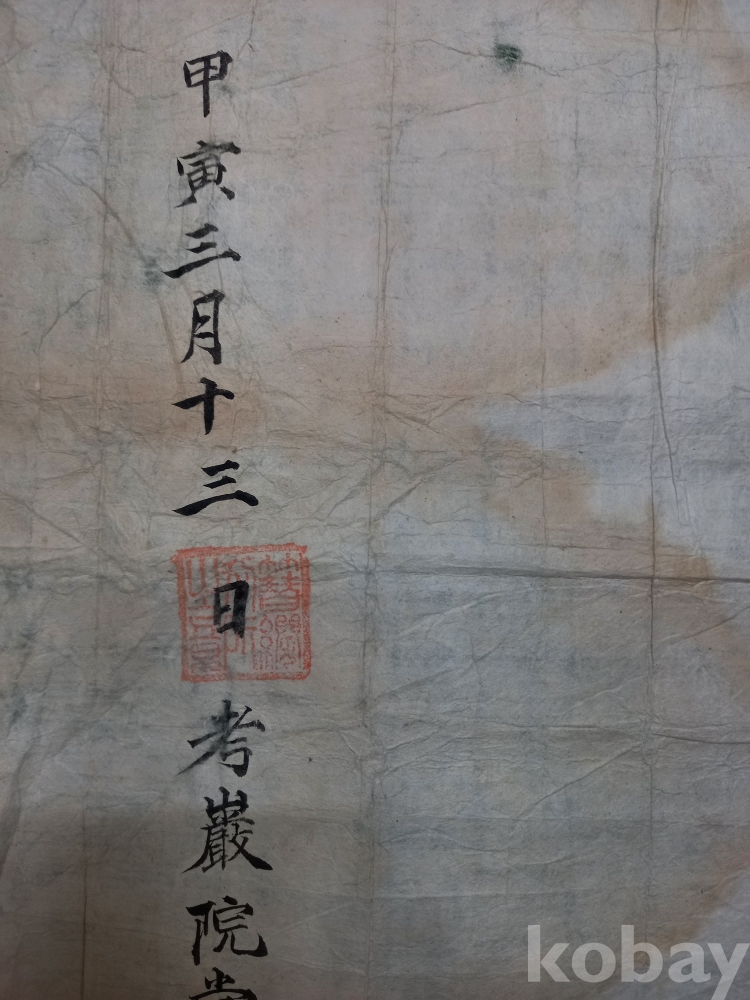 甲寅三月十三日考巖院
kobay